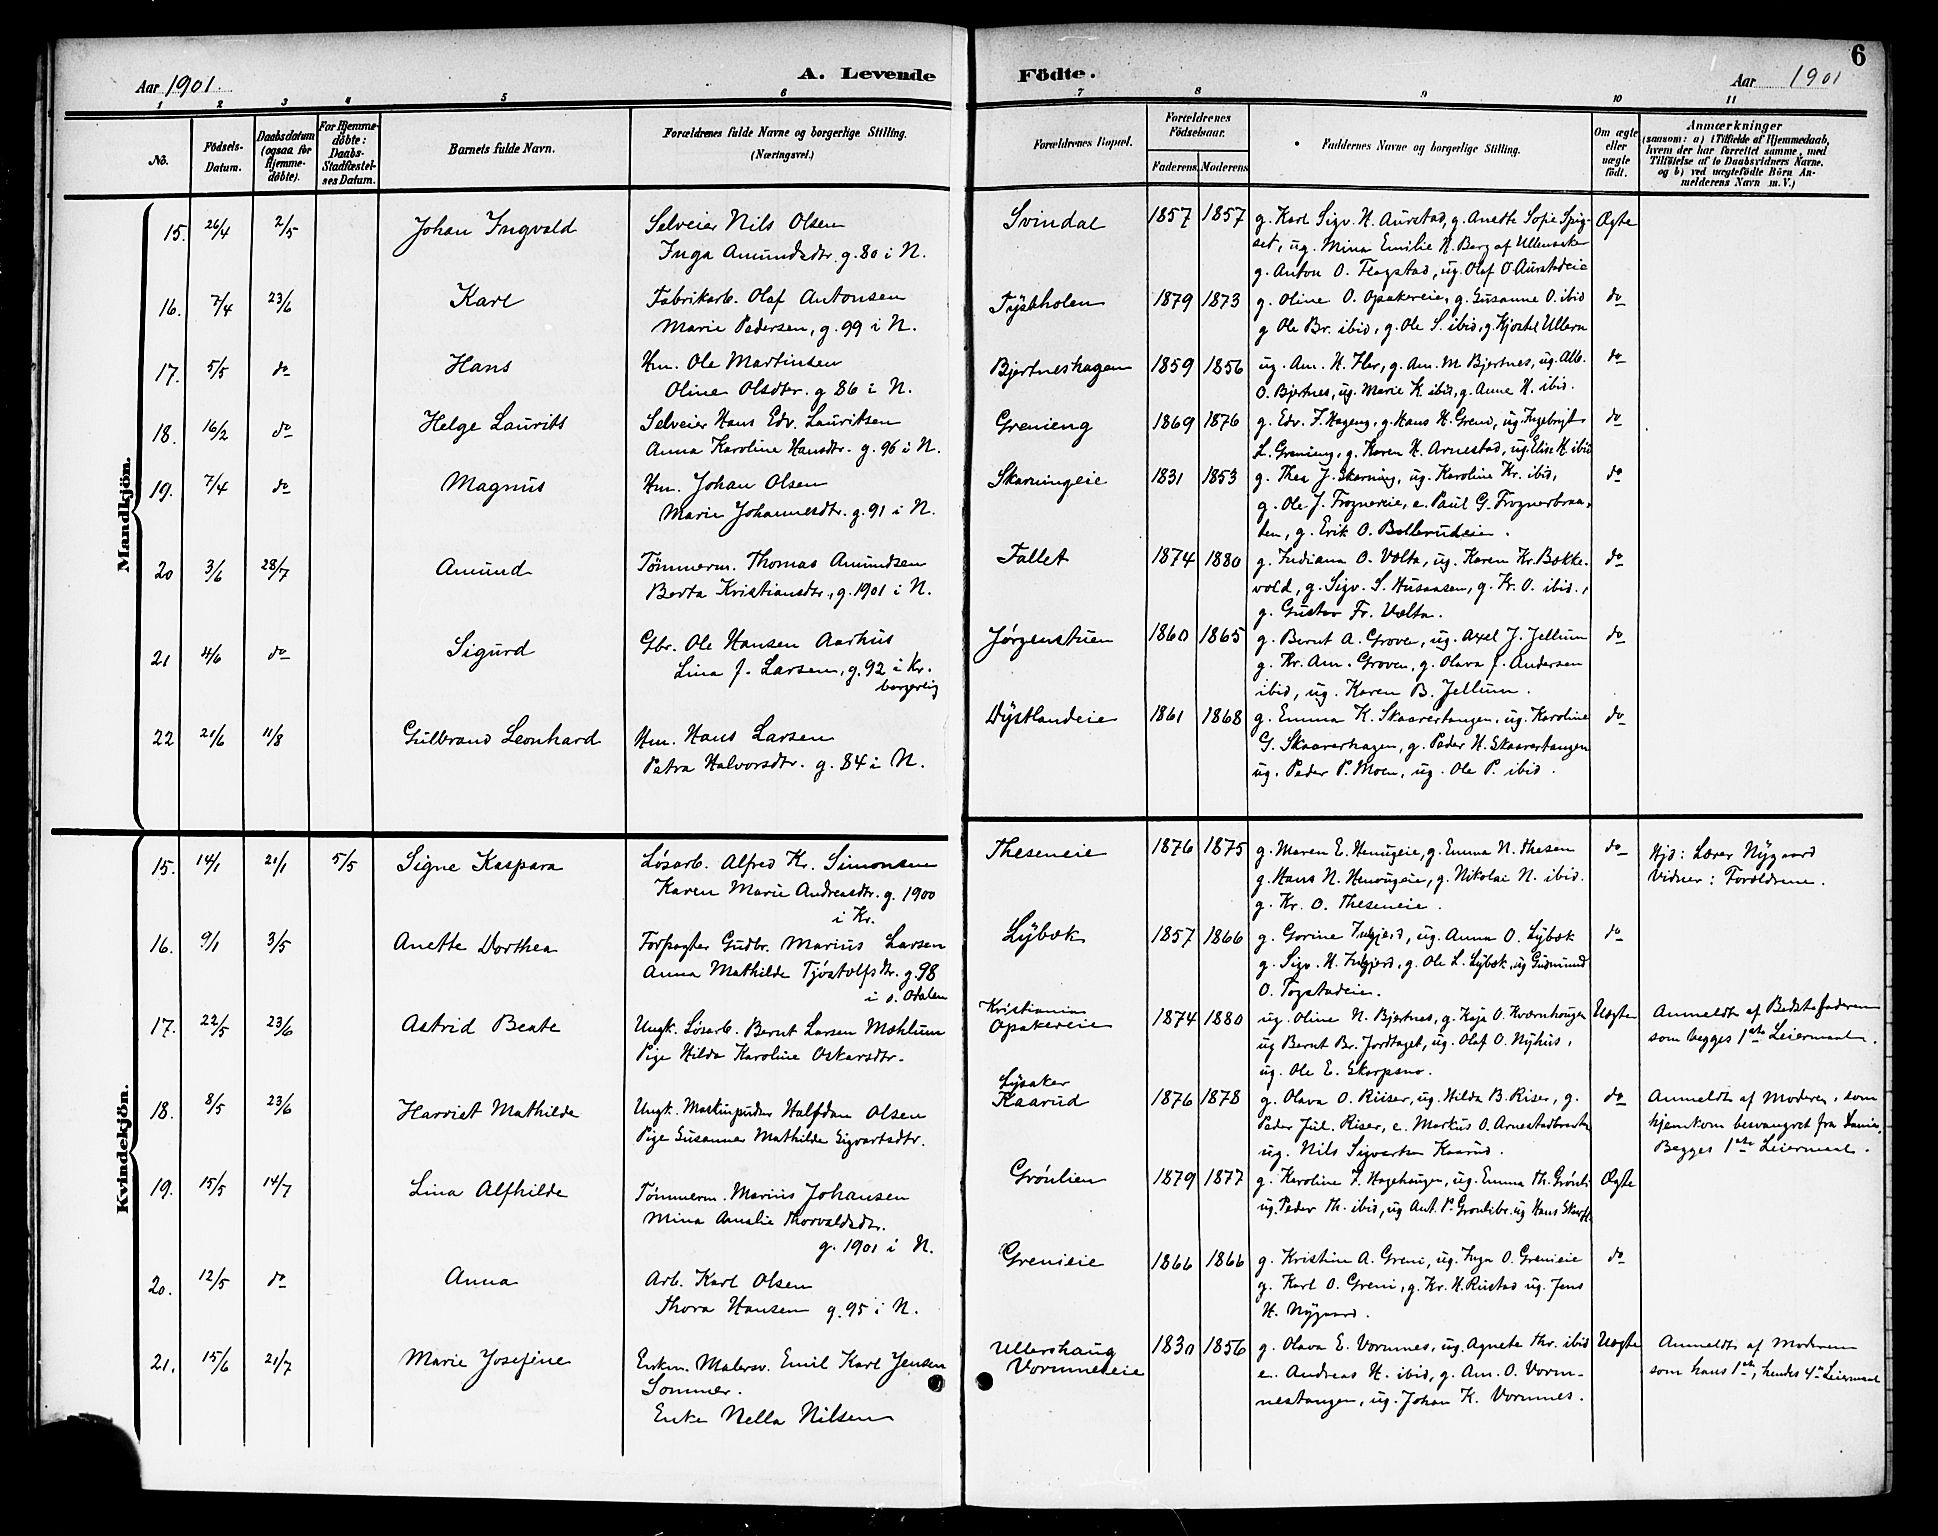 6
Aar 1901.
A. Levende
Födte.
Aar 1901
1 2 3 4 5 6 7 8 9 10 11
Nō.
Födsels-Datum.
Daabsdatum (ogsaa for Hjemme-døbte).
For Hjemme-døbte: Daabs-Stadfæstel-ses Datum.
Barnets fulde Navn.
Forældrenes fulde Navne og borgerlige Stilling.
(Næringsvei.)
Forældrenes Bopæl.
Forældrenes Fødselsaar.
Faderens. Moderens.
Faddernes Navne og borgerlige Stilling.
Om ægte eller uægte født.
Anmærkninger
(saasom: a) i Tilfælde af Hjemmedaab,
hvem der har forrettet samme, med
Tilföielse af to Daabsvidners Navne.
og b) ved uægtefödte Börn An-
melderens Navn m. V.)
Mandkjön.
15. 26/4 2/5 Johan Ingvald Selveier Nils Olsen Svindal 1857 1857 g. Karl Sigv. H. Aurstad, g. Anette Sofie Spig- Ægte
Inga Amundsdtr. g. 80 i N. set, ug. Mina Emilie H. Berg af Ullensaker
g. Anton O. Flagstad, ug. Olaf O. Aurstadeie
16. 7/4 23/6 Karl Fabrikarb. Olaf Antonsen Tyskholen 1879 1873 g. Oline O. Opakereie, g. Susanne O. ibid do
Marie Pedersen, g. 99 i N. g Ole Br. ibid, g. Ole S. ibid, g. Kjostel Ullern
17. 5/5 do Hans Hm. Ole Martinsen Bjertneshagen 1859 1856 ug. Am. H. Fler, g. Am. M. Bjertnes, ug. Alb. do
Oline Olsdtr. g 86 i N. O. Bjertnes, ug. Marie K. ibid, g. Anne H. ibid.
18. 16/2 do Helge Laurits Selveier Hans Edv. Lauritsen Grenieng 1869 1876 g. Edv. F. Hageng, g. Hans H. Greni, ug. Ingebrigt do
Anna Karoline Hansdtr. g. 96 i N. L. Grenieng, g. Karen H. Arnestad, ug. Elise H. ibid
19. 7/4 do Magnus Hm. Johan Olsen Skarningeie 1831 1853 g. Thea J. Skarning, ug. Karoline Kr. ibid, do
Marie Johannesdtr. g. 91 i N. g. Ole J. Frognereie, e. Paul G. Frognerbraa-
ten, g. Erik O. Bollerudeie.
20 3/6 28/7 Amund Tømmerm. Thomas Amundsen Fallet 1874 1880 g. Indiana O. Vølta, ug. Karen Kr. Bække- do
Berta Kristiansdtr, g. 1901 i N. vold, g. Sigv. S. Husaasen, g. Kr. O. ibid.,
g. Gustav Fr. Vælta.
21 4/6 do Sigurd Gbr. Ole Hansen Aarhus Jørgenstuen 1860 1865 g. Bernt A. Groven, ug. Axel J. Jellum do
Lina f. Larsen, g. 92 i Kr. g. Kr. Am. Groven, g. Olava f. Andersen
borgerlig ibid, ug. Karen B. Jellum.
22 21/6 11/8 Gulbrand Leonhard Hm. Hans Larsen Dystlandeie 1861 1868 g. Emma K. Skaarertangen, ug. Karoline do
Petra Halvorsdtr. g. 84 i N. G. Skaarerhagen, g. Peder H. Skaarertangen
ug. Peder P. Moen, ug. Ole P. ibid.
Kvindekjön.
15. 14/1 21/1 5/5 Signe Kaspara Løsarb. Alfred Kr. Simonsen Theseneie 1876 1875 g. Maren E. Henugeie, g. Emma N. Thesen do Hjd: Lærer Nygaard
Karen Marie Andreasdtr. g. 1900 g. Hans N. Henougeie, g. Nikolai N. ibid. Vidner: Forældrene.
i Kr. g. Kr. O. Theseneie.
16. 9/1 3/5 Anette Dorthea Forpagter Gudbr. Marius Larsen Lybæk 1857 1866 g. Gorine, ug. Anna O. Lybæk do
Anna Mathilde Tjøstolfsdtr. g. 98 g. Sigv. H., g. Ole L. Lybæk, ug Gudmund
i S. Odalen O. Togstadeie.
17. 22/5 23/6 Astrid Beate Ungk. Løsarb. Bernt Larsen Mæhlum Kristiania 1874 1880 ug. Oline N. Bjertnes, g. Kaja O. Kværnhaugen Uægte Anmeldt af Bedstefaderen
Pige Hilda Karoline Oskarsdtr. Opakereie ug Bernt Br. Jordtaget, ug. Olaf O. Nyhus, som begges 1ste Leiermaal.
ug. Ole E. Skarpsno.
18. 8/5 23/6 Harriet Mathilde Ungk. Maskinpudser Halfdan Olsen Lysaker 1876 1878 g. Olava O. Riiser, ug. Hilda B. Riser, g. do Anmeldt af Moderen, som
Pige Susanna Mathilde Sigvartsdtr. Kaarud Peder Jul. Riser, e. Markus O. Arnestadbraaten hjemkom besvangret fra
ug. Nils Sigvartsen Kaarud. Begges 1ste Leiermaal.
19. 15/5 14/7 Lina Alfhilde Tømmerm. Marius Johansen Grønlien 1879 1877 g. Karoline F. Hagehaugen, ug. Emma Th. Grønli Ægte
Mina Amalie Thorvaldsdtr. ug. Peder Th. ibid, ug Ant. P. Grønlibr. ug Hans
g. 1901 i N.
20. 12/5 do Anna Arb. Karl Olsen Grenieie 1866 1866 g. Kristine A. Greni, ug. Inga O. Grenieie do
Thora Hansen g. 95 i N. g. Karl O. Greni, g. Kr. H. Rustad ug. Jens
H. Nygaard.
21. 15/6 21/7 Marie Josefine Enkm. Malersv. Emil Karl Jensen Ullershaug 1830 1856 g. Olava E. Vormnes, ug. Agnete Thr. ibid Uægte Anmeldt af Moderen
Sommer. Vormneseie e. Andreas H. ibid, g. Am. O. Vorm- som hans 1ste, hendes 4de Leiermaal
Enke Nella Nilsen nestangen, ug. Johan K. Vormnes.